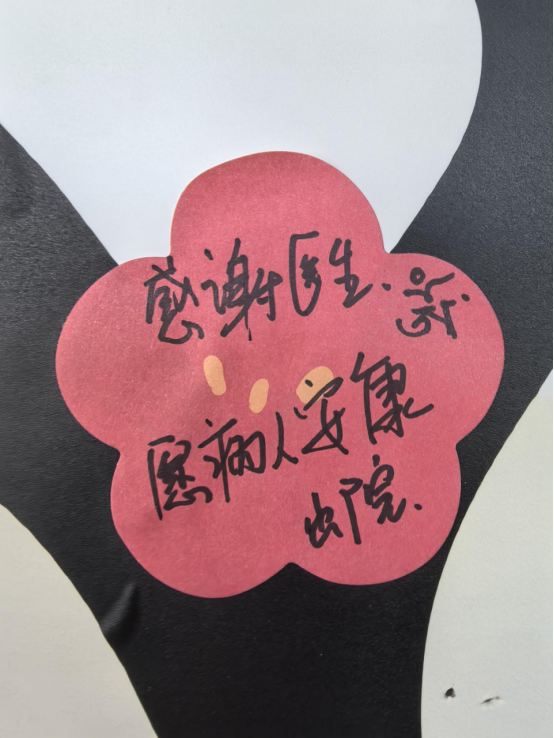 感谢医生.
愿病人安康
出院.